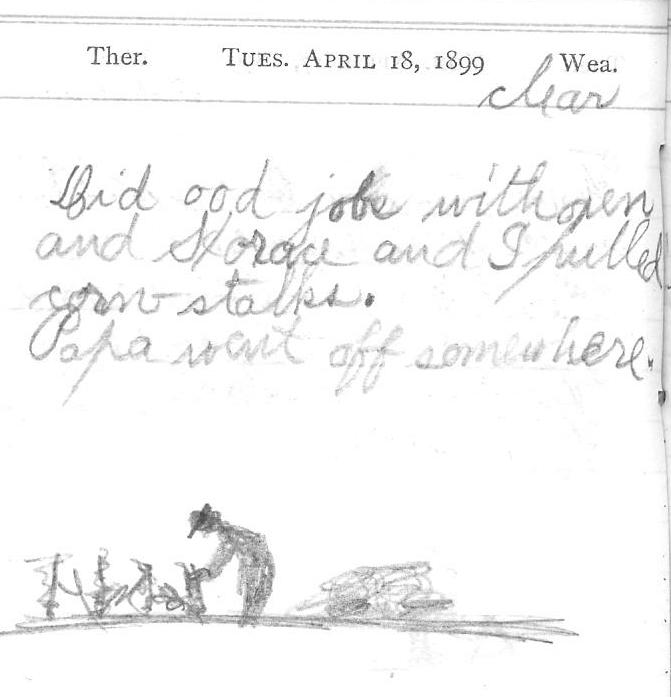 Ther. TUES. APRIL 18, 1899 Wea.
clear
Did ood jobs with oxen
and Horace and I pulled
corn stalks.
Papa went off somewhere.